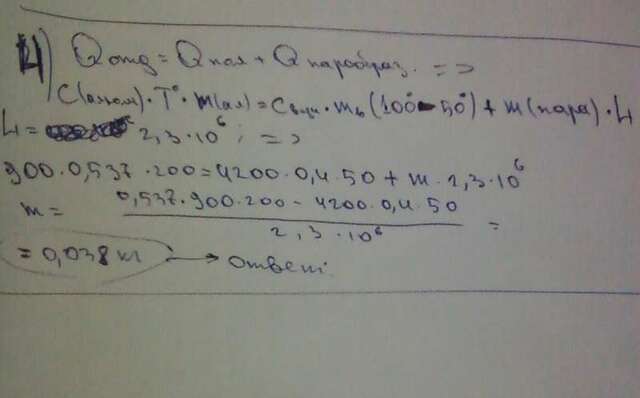 4) Qотд = Qпол + Q парообраз. =>
C(алюм)·T°·m(ал) = Cводы·mв(100°-50°) + m(пара)·L
L = 2,3·10⁶; =>
900·0,537·200=4200·0,4·50 + m·2,3·10⁶
m = 0,537·900·200 - 4200·0,4·50 =
2,3·10⁶
= 0,038 кг → ответ.